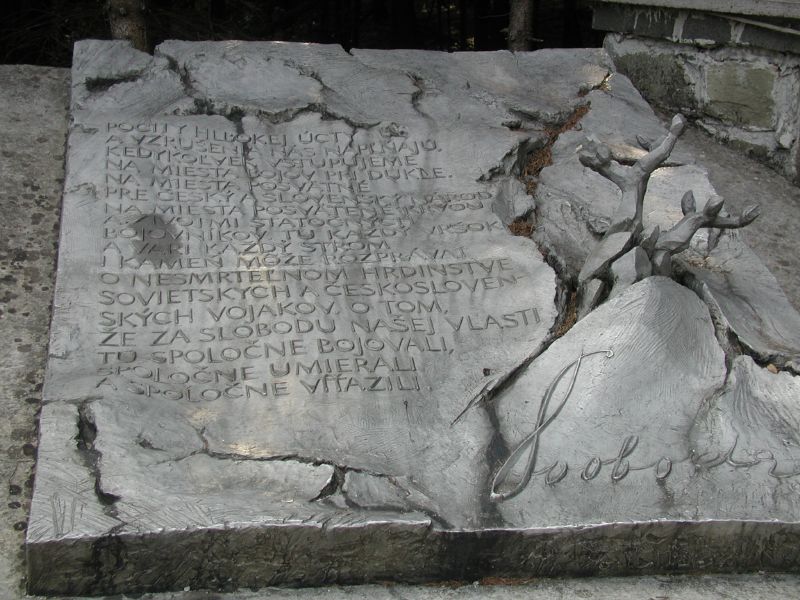 POCITY HLBOKEJ ÚCTY
A VZRUŠENIA NÁS NAPĹŇAJÚ,
KEDYKOĽVEK VSTUPUJEME
NA MIESTA BOJOV PRI DUKLE.
NA MIESTA POSVÄTNÉ
PRE ČESKÝ A SLOVENSKÝ ĽUD,
NA MIESTA POSVÄTENÉ KRVOU
BOJOV. TU KAŽDÝ VŔŠOK
KAŽDÝ STROM
I KAMEŇ MÔŽE ROZPRÁVAŤ
O NESMRTEĽNOM HRDINSTVE
SOVIETSKÝCH A ČESKOSLOVEN
SKÝCH VOJAKOV. O TOM,
ŽE ZA SLOBODU NAŠEJ VLASTI
TU SPOLOČNE BOJOVALI,
SPOLOČNE UMIERALI
A SPOLOČNE VÍŤAZILI.
Svoboda